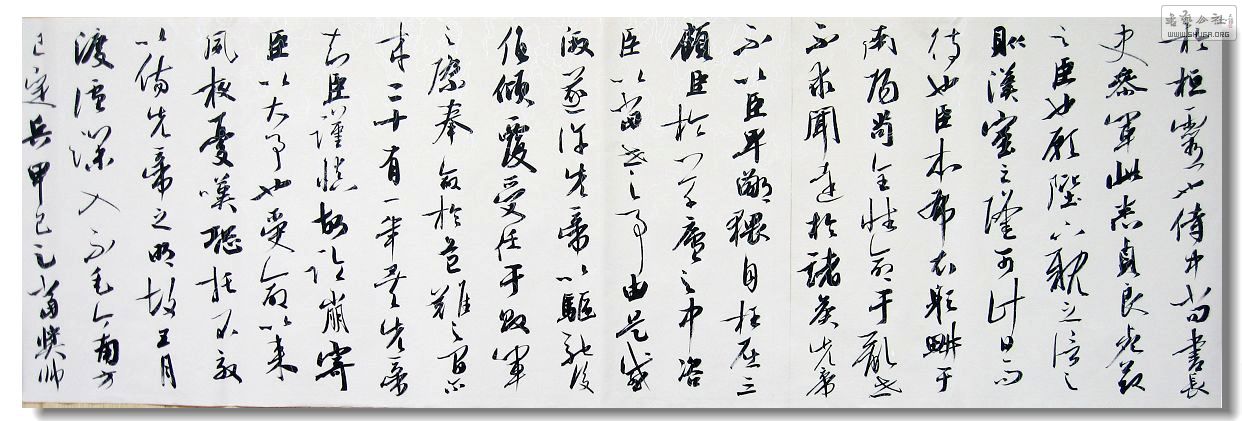 於桓靈也侍中尚書長
史參軍此悉貞良死節
之臣也願陛下親之信之
則漢室之隆可計日而
待也臣本布衣躬耕于
南陽苟全性命于亂世
不求聞達於諸侯先帝
不以臣卑鄙猥自枉屈三
顧臣於草廬之中咨
臣以當世之事由是感
激遂许先帝以驅馳後
值傾覆受任于敗軍
之際奉命於危難之间尔
来二十有一年矣先帝
知臣謹慎故臨崩寄
臣以大事也受命以来
夙夜憂嘆恐托不效
以傷先帝之明故五月
渡瀘深入不毛今南方
已定兵甲已足當獎帅
書藝公社
WWW.SHUFA.ORG